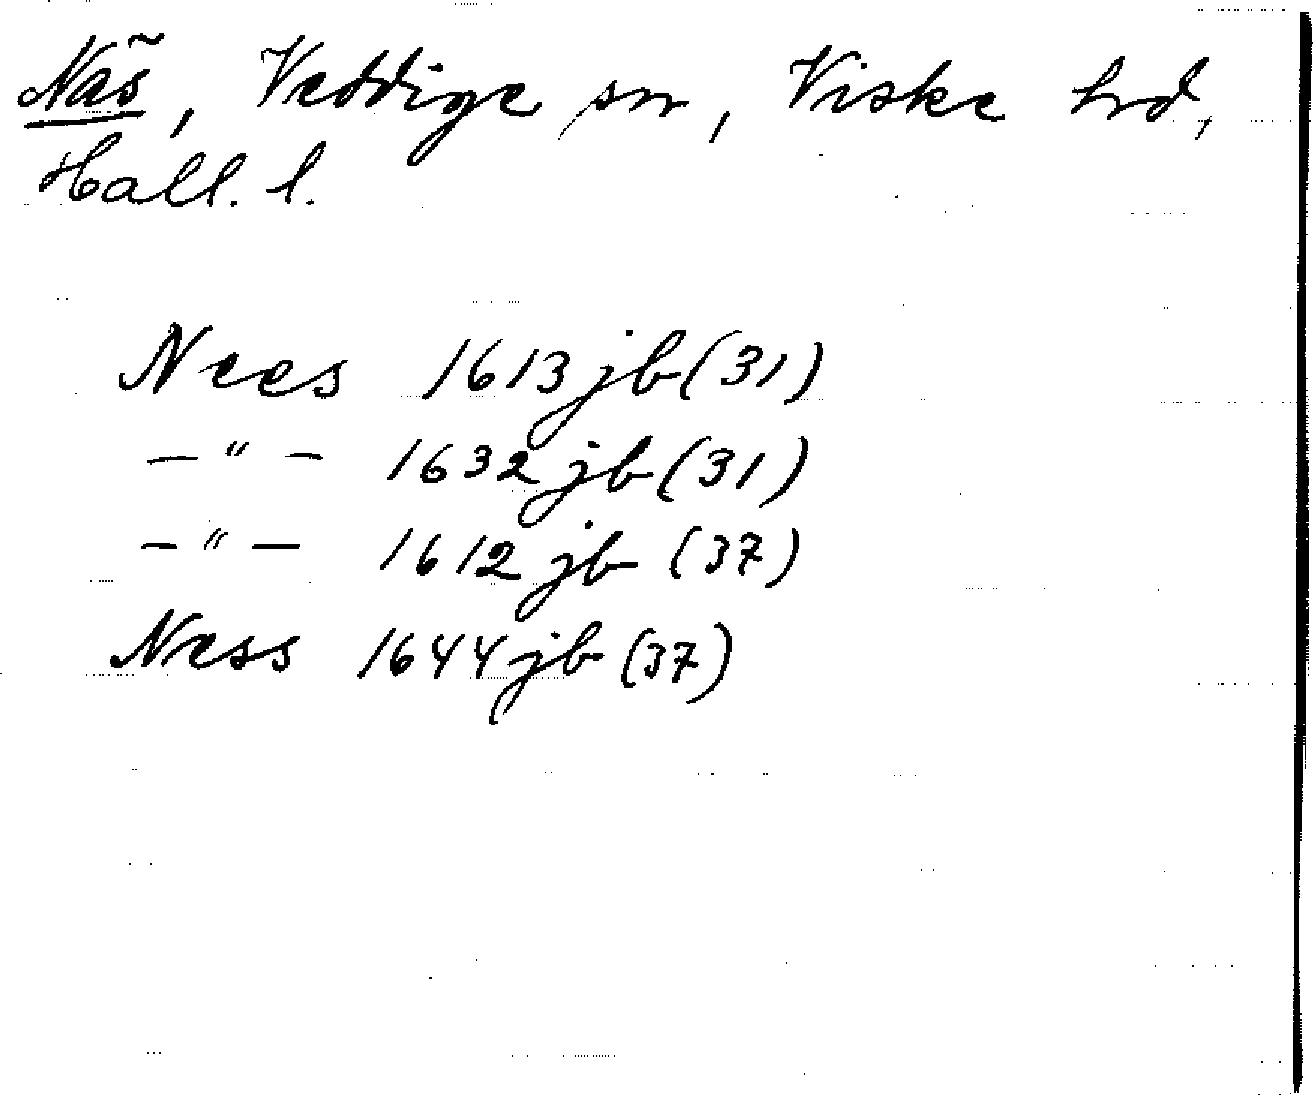 Näs, Veddige sn, Viske hd,
Hall. l.
Nees 1613 jb (31)
— " — 1632 jb (31)
— " — 1612 jb (37)
Ness 1644 jb (37)